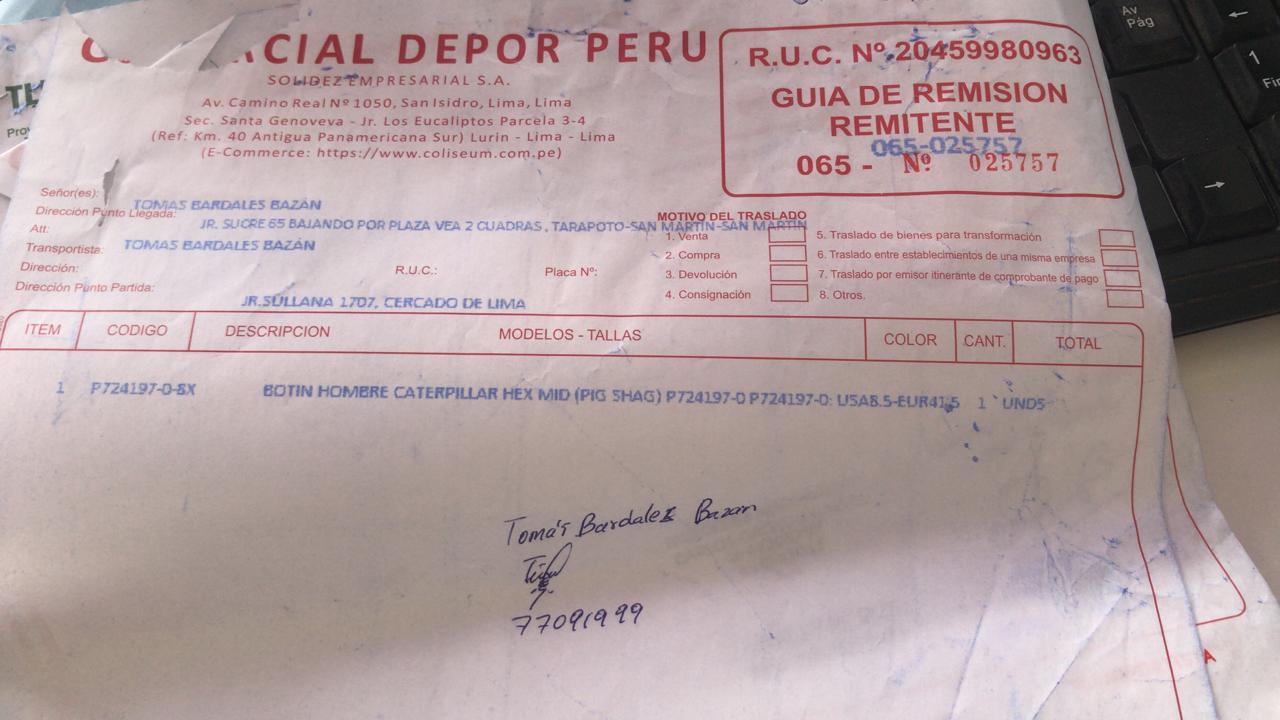 CIAL DEPOR PERU
SOLIDEZ EMPRESARIAL S.A.
Av. Camino Real Nº 1050, San Isidro, Lima, Lima
Sec. Santa Genoveva - Jr. Los Eucaliptos Parcela 3-4
(Ref: Km. 40 Antigua Panamericana Sur) Lurin - Lima - Lima
(E-Commerce: https://www.coliseum.com.pe)
R.U.C. Nº 20459980963
GUIA DE REMISION
REMITENTE
065-025757
065 - Nº 025757
Señor(es): TOMAS BARDALES BAZAN
Dirección Punto Llegada: JR. SUCRE 65 BAJANDO POR PLAZA VEA 2 CUADRAS, TARAPOTO-SAN MARTIN-SAN MARTIN
Att:
Transportista: TOMAS BARDALES BAZAN
Dirección: R.U.C.: Placa Nº:
Dirección Punto Partida: JR.SULLANA 1707, CERCADO DE LIMA
MOTIVO DEL TRASLADO
1. Venta
2. Compra
3. Devolución
4. Consignación
5. Traslado de bienes para transformación
6. Traslado entre establecimientos de una misma empresa
7. Traslado por emisor itinerante de comprobante de pago
8. Otros.
ITEM CODIGO DESCRIPCION MODELOS - TALLAS COLOR CANT. TOTAL
1 P724197-0-8X BOTIN HOMBRE CATERPILLAR HEX MID (PIG SHAG) P724197-0 P724197-0: USA8.5-EUR41.5 1 UNDS
Tomás Bardales Bazan
77091999
A
Av
Pág
←
1
→